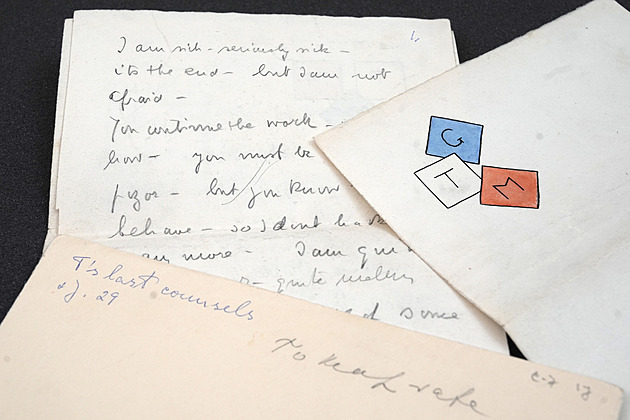 I am sick - seriously sick -
its the end - but I am not
afraid -
You continue the work -
how - you must be
but you know
behave - so I dont have
any more - I am qui
quite
of some
G
T
M
T's last counsels
J. 29
To keep safe